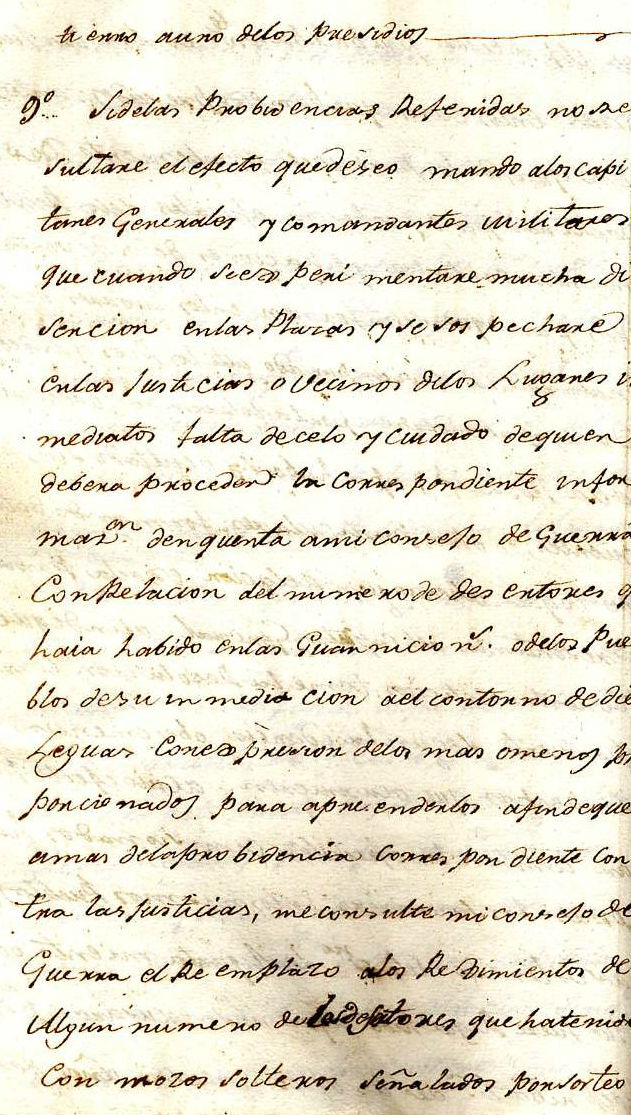 tierro auno delos presidios
9º.. Sidelas Probidencias Referidas no Re
sultare el efecto quedeseo mando alos capi
tanes Generales y comandantes Militares
que cuando seexperi mentare mucha di
sercion enlas Plazas y se sos pechare
enlas Justicias o vecinos delos Lugares in
mediatos falta decelo y cuidado dequien
debera proceder la Corres pondiente infor
mazon. denquenta ami consejo de Guerra
ConRelacion del numero de des ertores q
haia habido enlas Guarnicion.s odelos Pue
blos desu inmedia cion del contorno de die
Leguas Conexpresion delos mas omenos pro
porcionados para aprenderlos afindeque
amas delaprobidencia Corres pon diente Con
tra las Justicias, me consulte mi consejo de
Guerra el Re emplazo alos Reximientos de
Algun numero de que hatenido
Con mozos solteros señalados por sorteo